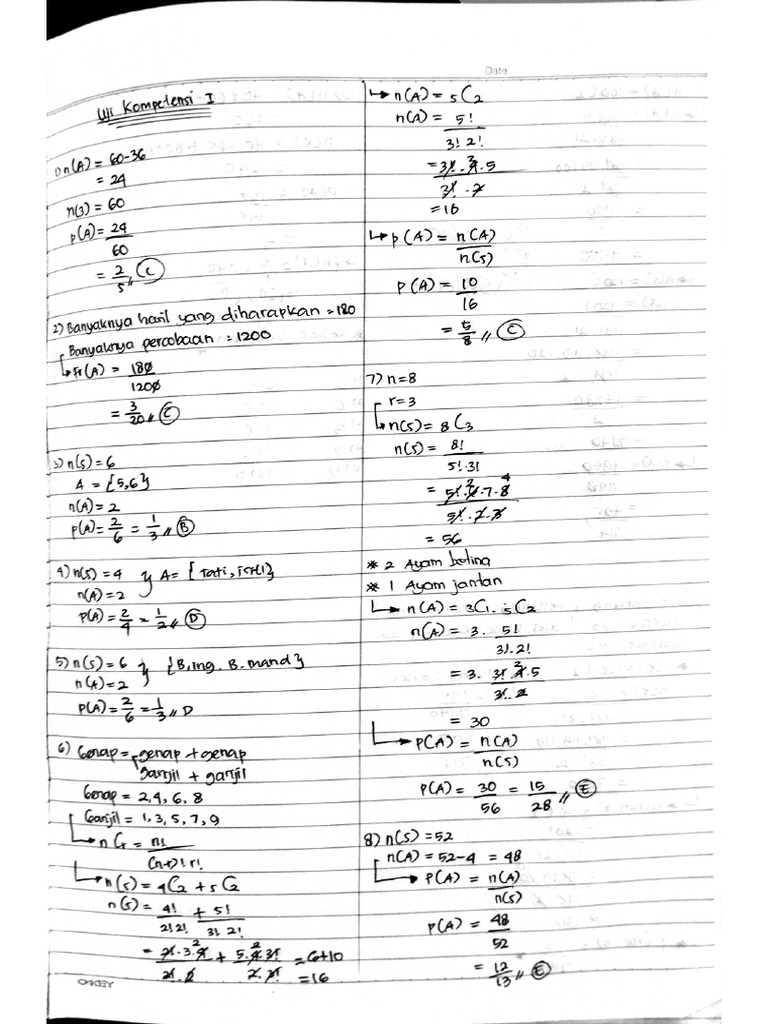 Date
Uji Kompetensi I
1) n(A) = 60-36
= 24
n(s) = 60
p(A) = 24
60
= 2
5 // C
2) Banyaknya hasil yang diharapkan = 180
Banyaknya percobaan = 1200
↳ Fr(A) = 180
1200
= 3
20 // C
3) n(s) = 6
A = {5,6}
n(A) = 2
p(A) = 2/6 = 1/3 // B
4) n(s) = 4 } A = {Tati, isti}
n(A) = 2
p(A) = 2/4 = 1/2 // D
5) n(s) = 6 } {B.ing. B.mand}
n(A) = 2
p(A) = 2/6 = 1/3 // D
6) Genap = genap + genap
ganjil + ganjil
Genap = 2,4,6,8
Ganjil = 1,3,5,7,9
↳ nCr = n!
(n-r)! r!
↳ n(s) = 4C2 + 5C2
n(s) = 4! + 5!
2!2! 3! 2!
= 2!.3.4 + 5.4.3! = 6+10
2!.2 2.3! = 16
YEDPO
↳ n(A) = 5C2
n(a) = 5!
3! 2!
= 3!.4.5
3!.2
= 16
↳ p(A) = n(A)
n(s)
p(A) = 10
16
= 5
8 // C
7) n = 8
r = 3
↳ n(s) = 8C3
n(s) = 8!
5!.3!
= 5!.6.7.8
5!.2.3
= 56
* 2 Ayam betina
* 1 Ayam jantan
↳ n(A) = 3C1 . 5C2
n(A) = 3. 5!
3!.2!
= 3. 3!.4.5
3!.2
= 30
↳ p(A) = n(A)
n(s)
p(A) = 30 = 15
56 28 // E
8) n(s) = 52
n(A) = 52-4 = 48
↳ p(A) = n(A)
n(s)
p(A) = 48
52
= 12
13 // E